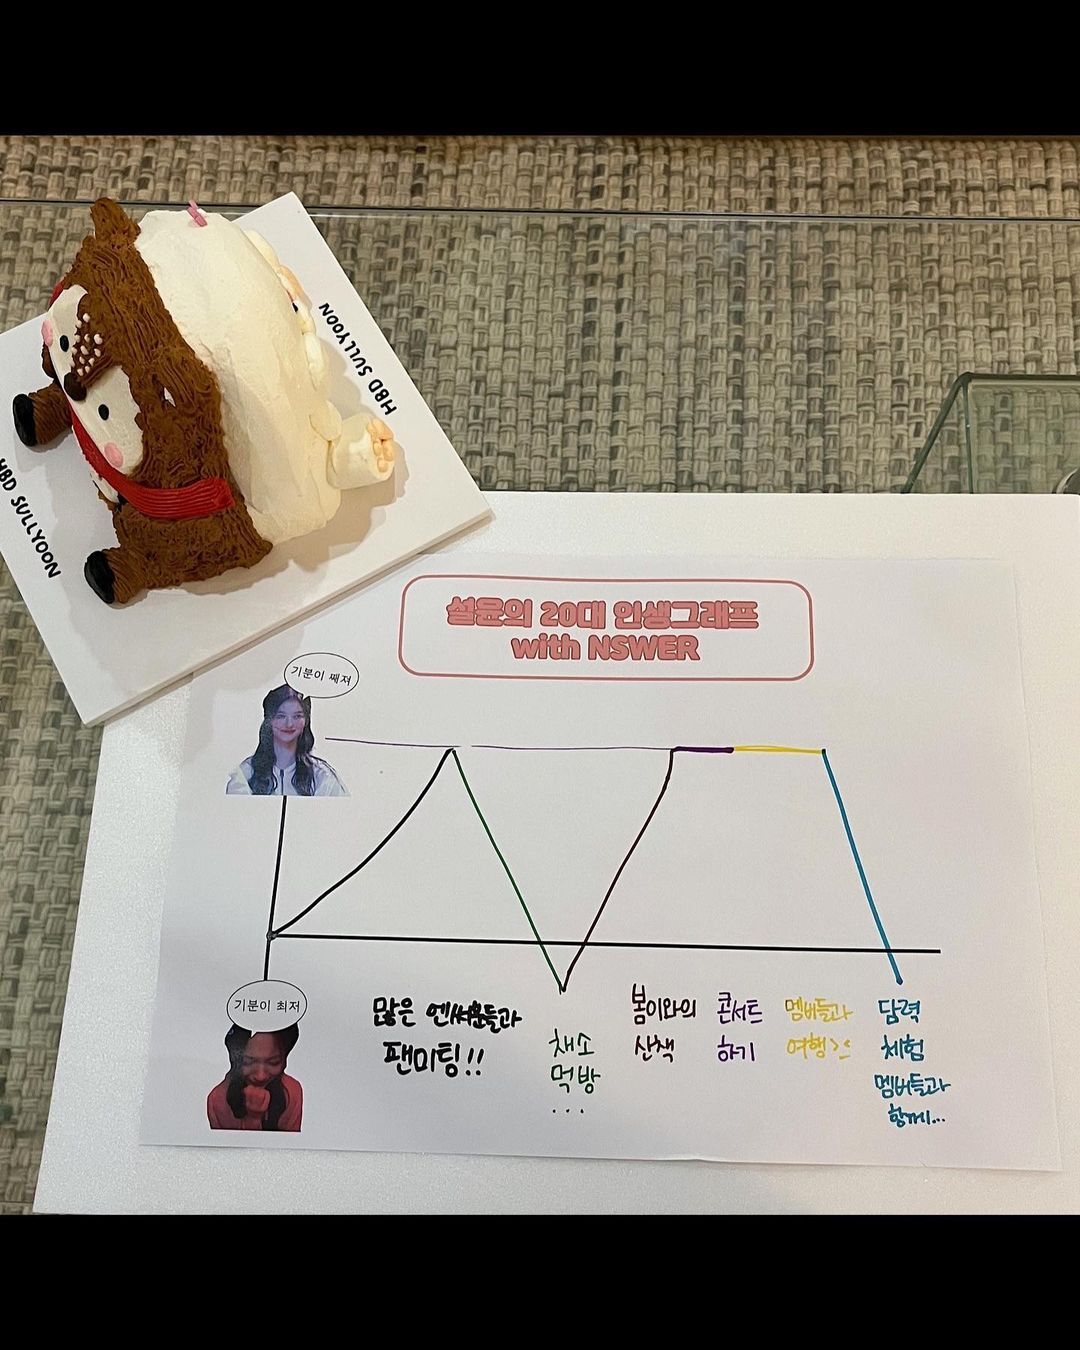 HBD SULLYOON
HBD SULLYOON
설윤의 20대 인생그래프
with NSWER
기분이 째져
기분이 최저
많은 엔써분들과
팬미팅!!
채소
먹방
...
봄이와의
산책
콘서트
하기
멤버들과
여행><
담력
체험
멤버들과
함께...